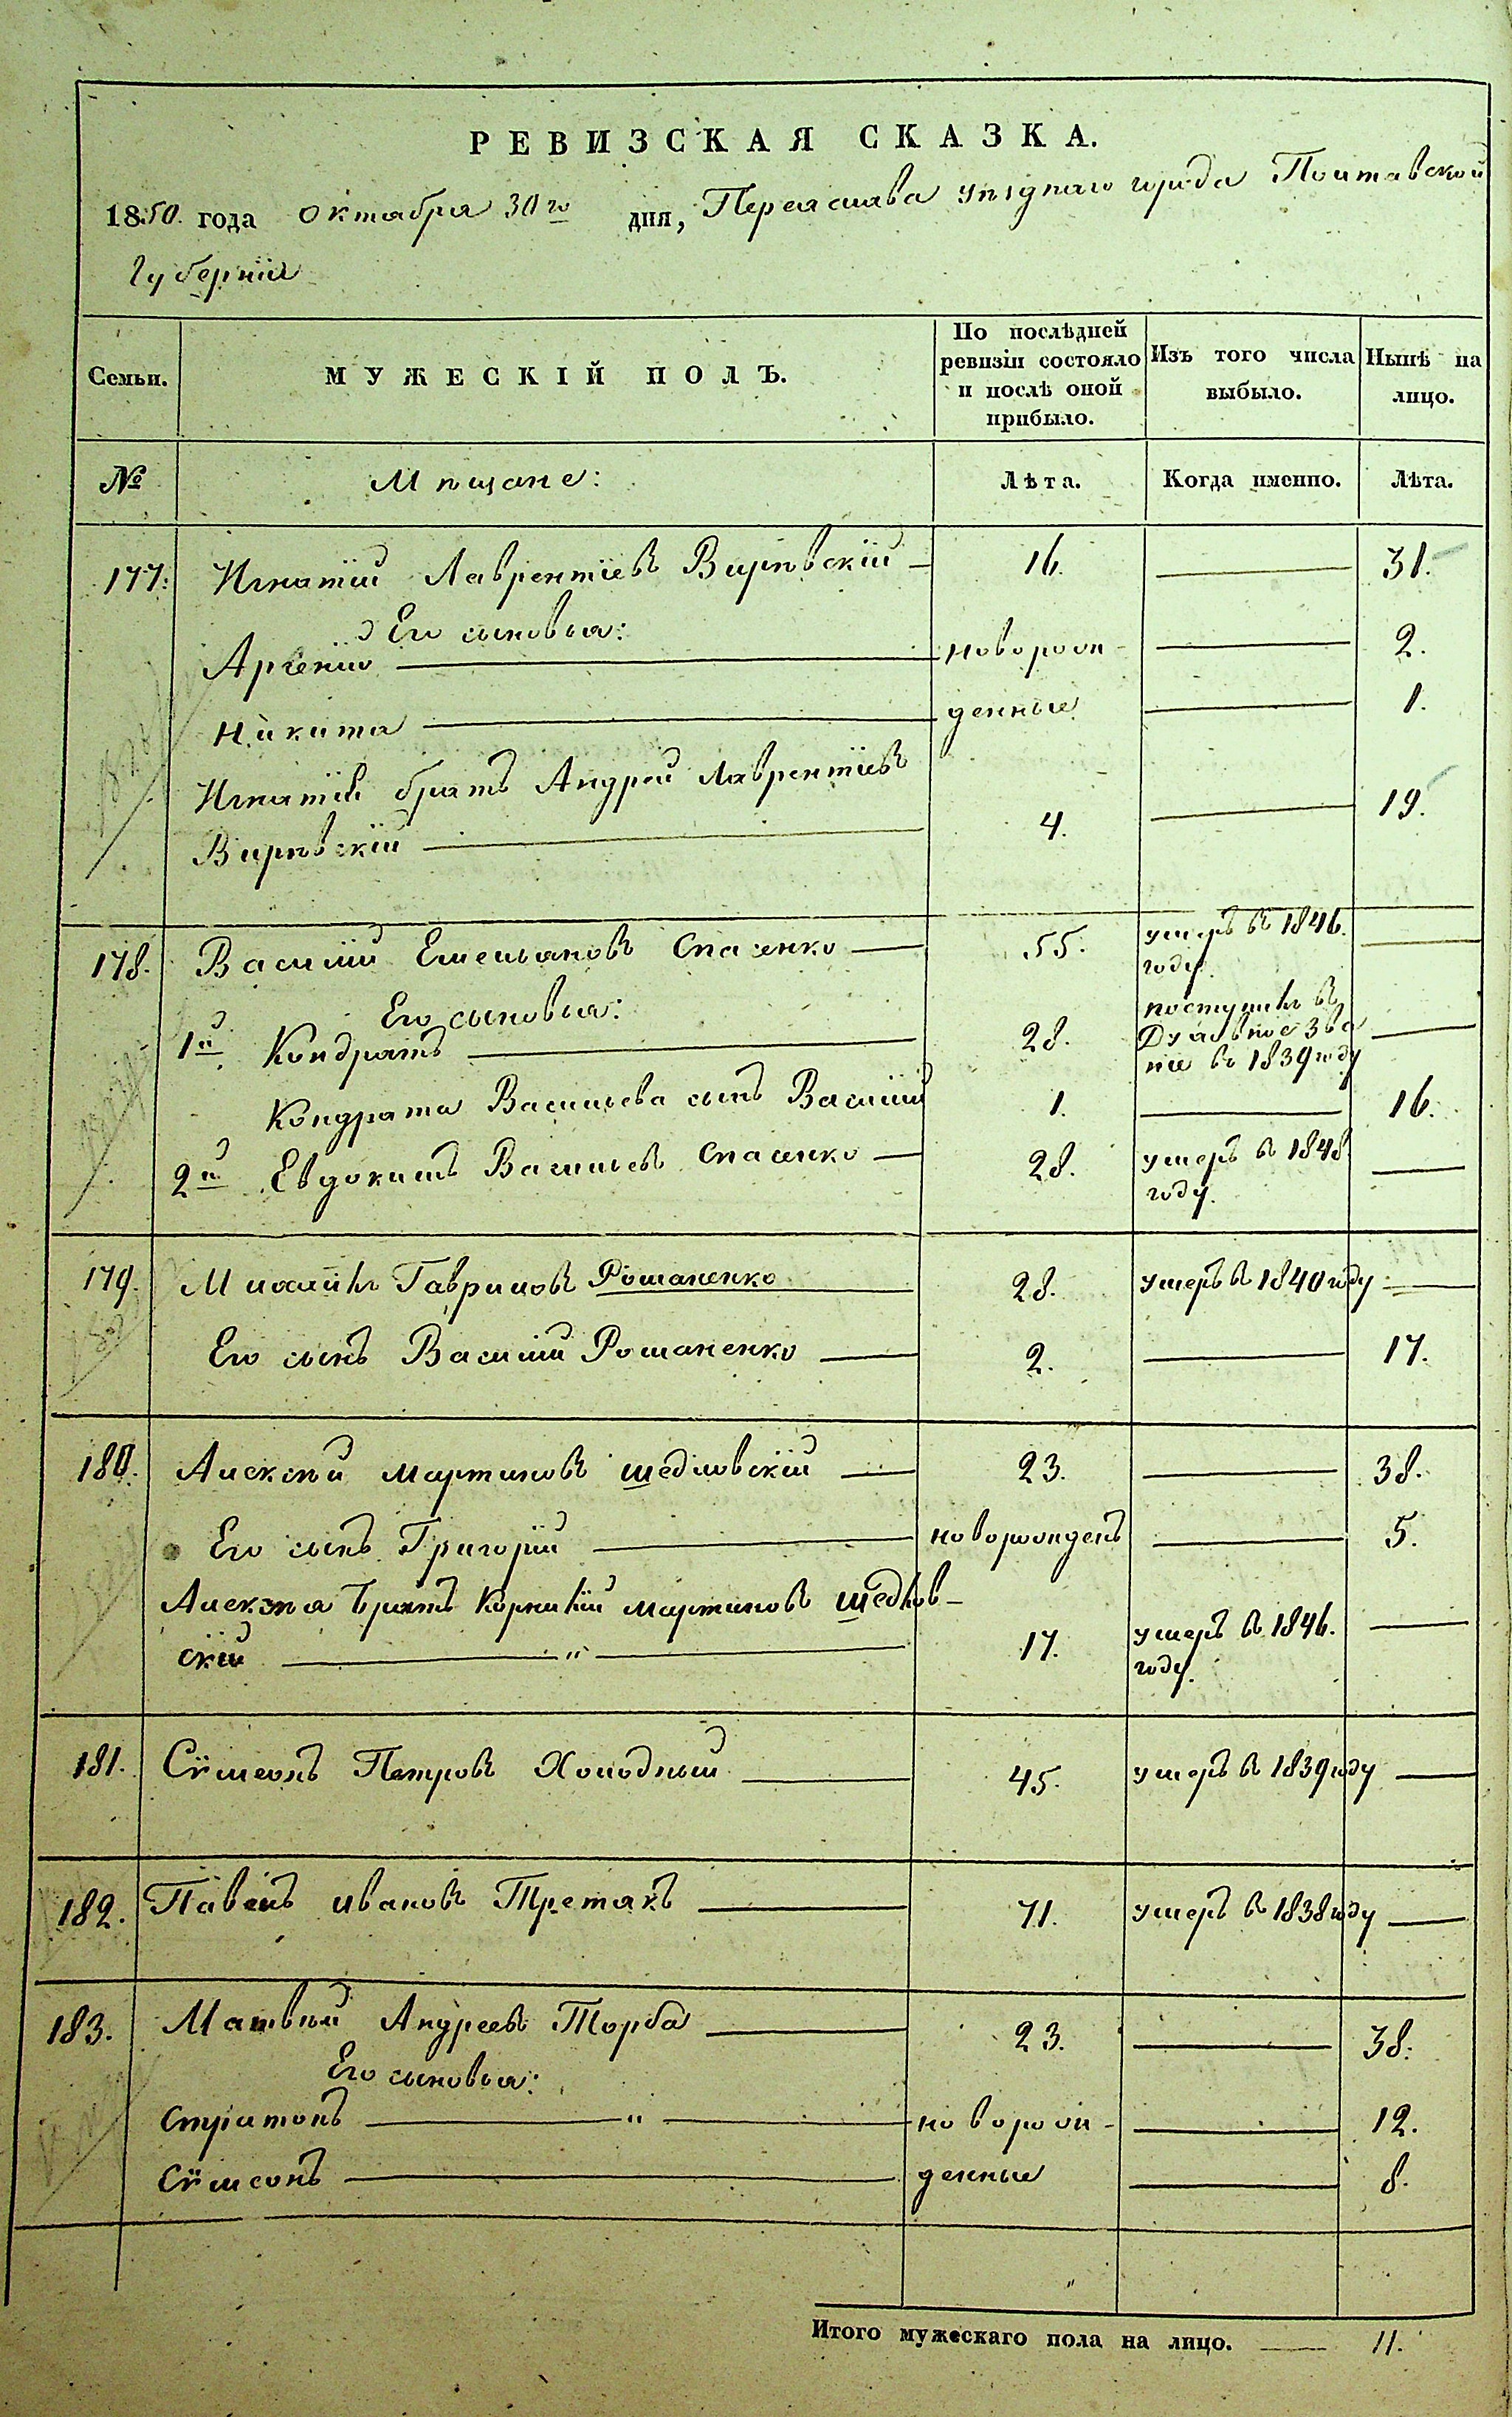 РЕВИЗСКАЯ СКАЗКА.
1850. года октября 30го дня, Переяслава уѣзднаго города Полтавской
Губерніи
Семьи.
МУЖЕСКІЙ ПОЛЪ.
По послѣдней
ревизіи состояло
и послѣ оной
прибыло.
Изъ того числа
выбыло.
Нынѣ на
лицо.
№ Мѣщане: Лѣта. Когда именно. Лѣта.
177. Игнатій Лаврентіевъ Вирѣвскій — 16. — 31.
Его сыновья:
Арсеній — новорож- — 2.
Никита — денные — 1.
Игнатія братъ Андрей Лаврентіевъ
Вирѣвскій — 4. — 19.
178. Василій Емельяновъ Спасенко — 55. умеръ въ 1846. —
году.
Его сыновья:
1й Кондратъ — 28. поступилъ въ —
Духовное зва
ніе въ 1839 году
Кондрата Васильева сынъ Василій 1. — 16.
2й Евдокимъ Васильевъ Спасенко — 28. умеръ въ 1848. —
году.
179. Михаилъ Гавриловъ Романенко 28. умеръ въ 1840 году —
Его сынъ Василій Романенко — 2. — 17.
180. Алексѣй Мартиновъ Шедловскій — 23. — 38.
Его сынъ Григорій — новорожденъ — 5.
Алексѣя братъ Корнилій Мартиновъ Шедлов-
скій — " — 17. умеръ въ 1846. —
году.
181. Сѵмеонъ Петровъ Холодный — 45. умеръ въ 1839 году —
182. Павелъ Ивановъ Третякъ — 71. умеръ въ 1838 году —
183. Матвѣй Андреевъ Торба — 23. — 38.
Его сыновья:
Стратонъ — " — новорож- — 12.
Сѵмеонъ — денные — 8.
"
Итого мужескаго пола на лицо. — 11.